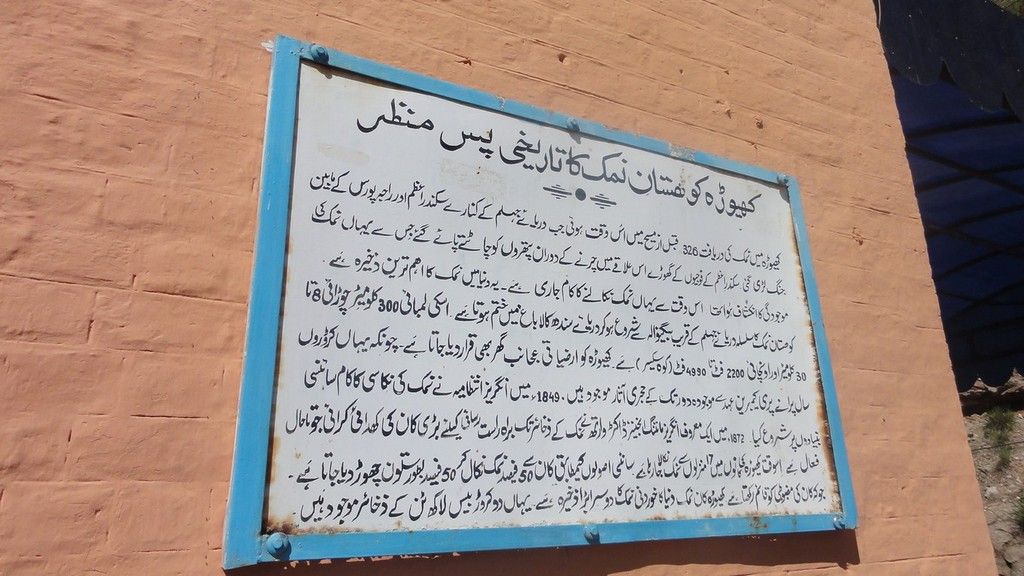 کھیوڑہ کوہستان نمک کا تاریخی پس منظر
کھیوڑہ میں نمک کی دریافت 326 قبل از مسیح میں اس وقت ہوئی جب دریائے جہلم کے کنارے سکندر اعظم اور راجہ پورس کے مابین
جنگ لڑی گئی سکندر اعظم کے فوجیوں کے گھوڑے اس علاقے میں چرنے کے دوران پتھروں کو چاٹتے پائے گئے جس سے یہاں نمک کی
موجودگی کا انکشاف ہوا اس وقت سے یہاں نمک نکالنے کا کام جاری ہے۔ یہ دنیا میں نمک کا اہم ترین ذخیرہ ہے۔
کوہستان نمک کا سلسلہ دریائے جہلم کے قریب بیگنوالہ سے شروع ہو کر دریائے سندھ کالا باغ میں ختم ہوتا ہے۔ اسکی لمبائی 300 کلومیٹر چوڑائی 8 تا
30 کلومیٹر اور اونچائی 2200 فٹ تا 4990 فٹ (کوہ سکیسر) ہے۔ کھیوڑہ کو ارضیاتی عجائب گھر بھی قرار دیا جاتا ہے۔ چونکہ یہاں کروڑوں
سال پرانے پری کیمبرین عہد سے موجودہ دور تک کے حجری آثار موجود ہیں۔ 1849ء میں انگریز انتظامیہ نے نمک کی نکاسی کا کام سائنسی
بنیادوں پر شروع کیا۔ 1872ء میں ایک معروف انگریز مائننگ انجینئر ڈاکٹر وارتھ نے نمک کے ذخائر تک براہ راست رسائی کیلئے بڑی کان کی کھدائی کرائی جو تاحال
فعال ہے۔ اسوقت کھیوڑہ میں 17 منزلوں سے نمک نکالا جا رہا ہے۔ سائنسی اصولوں کے مطابق کان سے 50 فیصد نمک نکال کر 50 فیصد بطور ستون چھوڑ دیا جاتا ہے۔
جو کہ کان کی مضبوطی کو قائم رکھتا ہے۔ کھیوڑہ کان نمک دنیا کا خوردنی نمک کا دوسرا بڑا ذخیرہ ہے۔ یہاں دو کروڑ بیس لاکھ ٹن کے ذخائر موجود ہیں